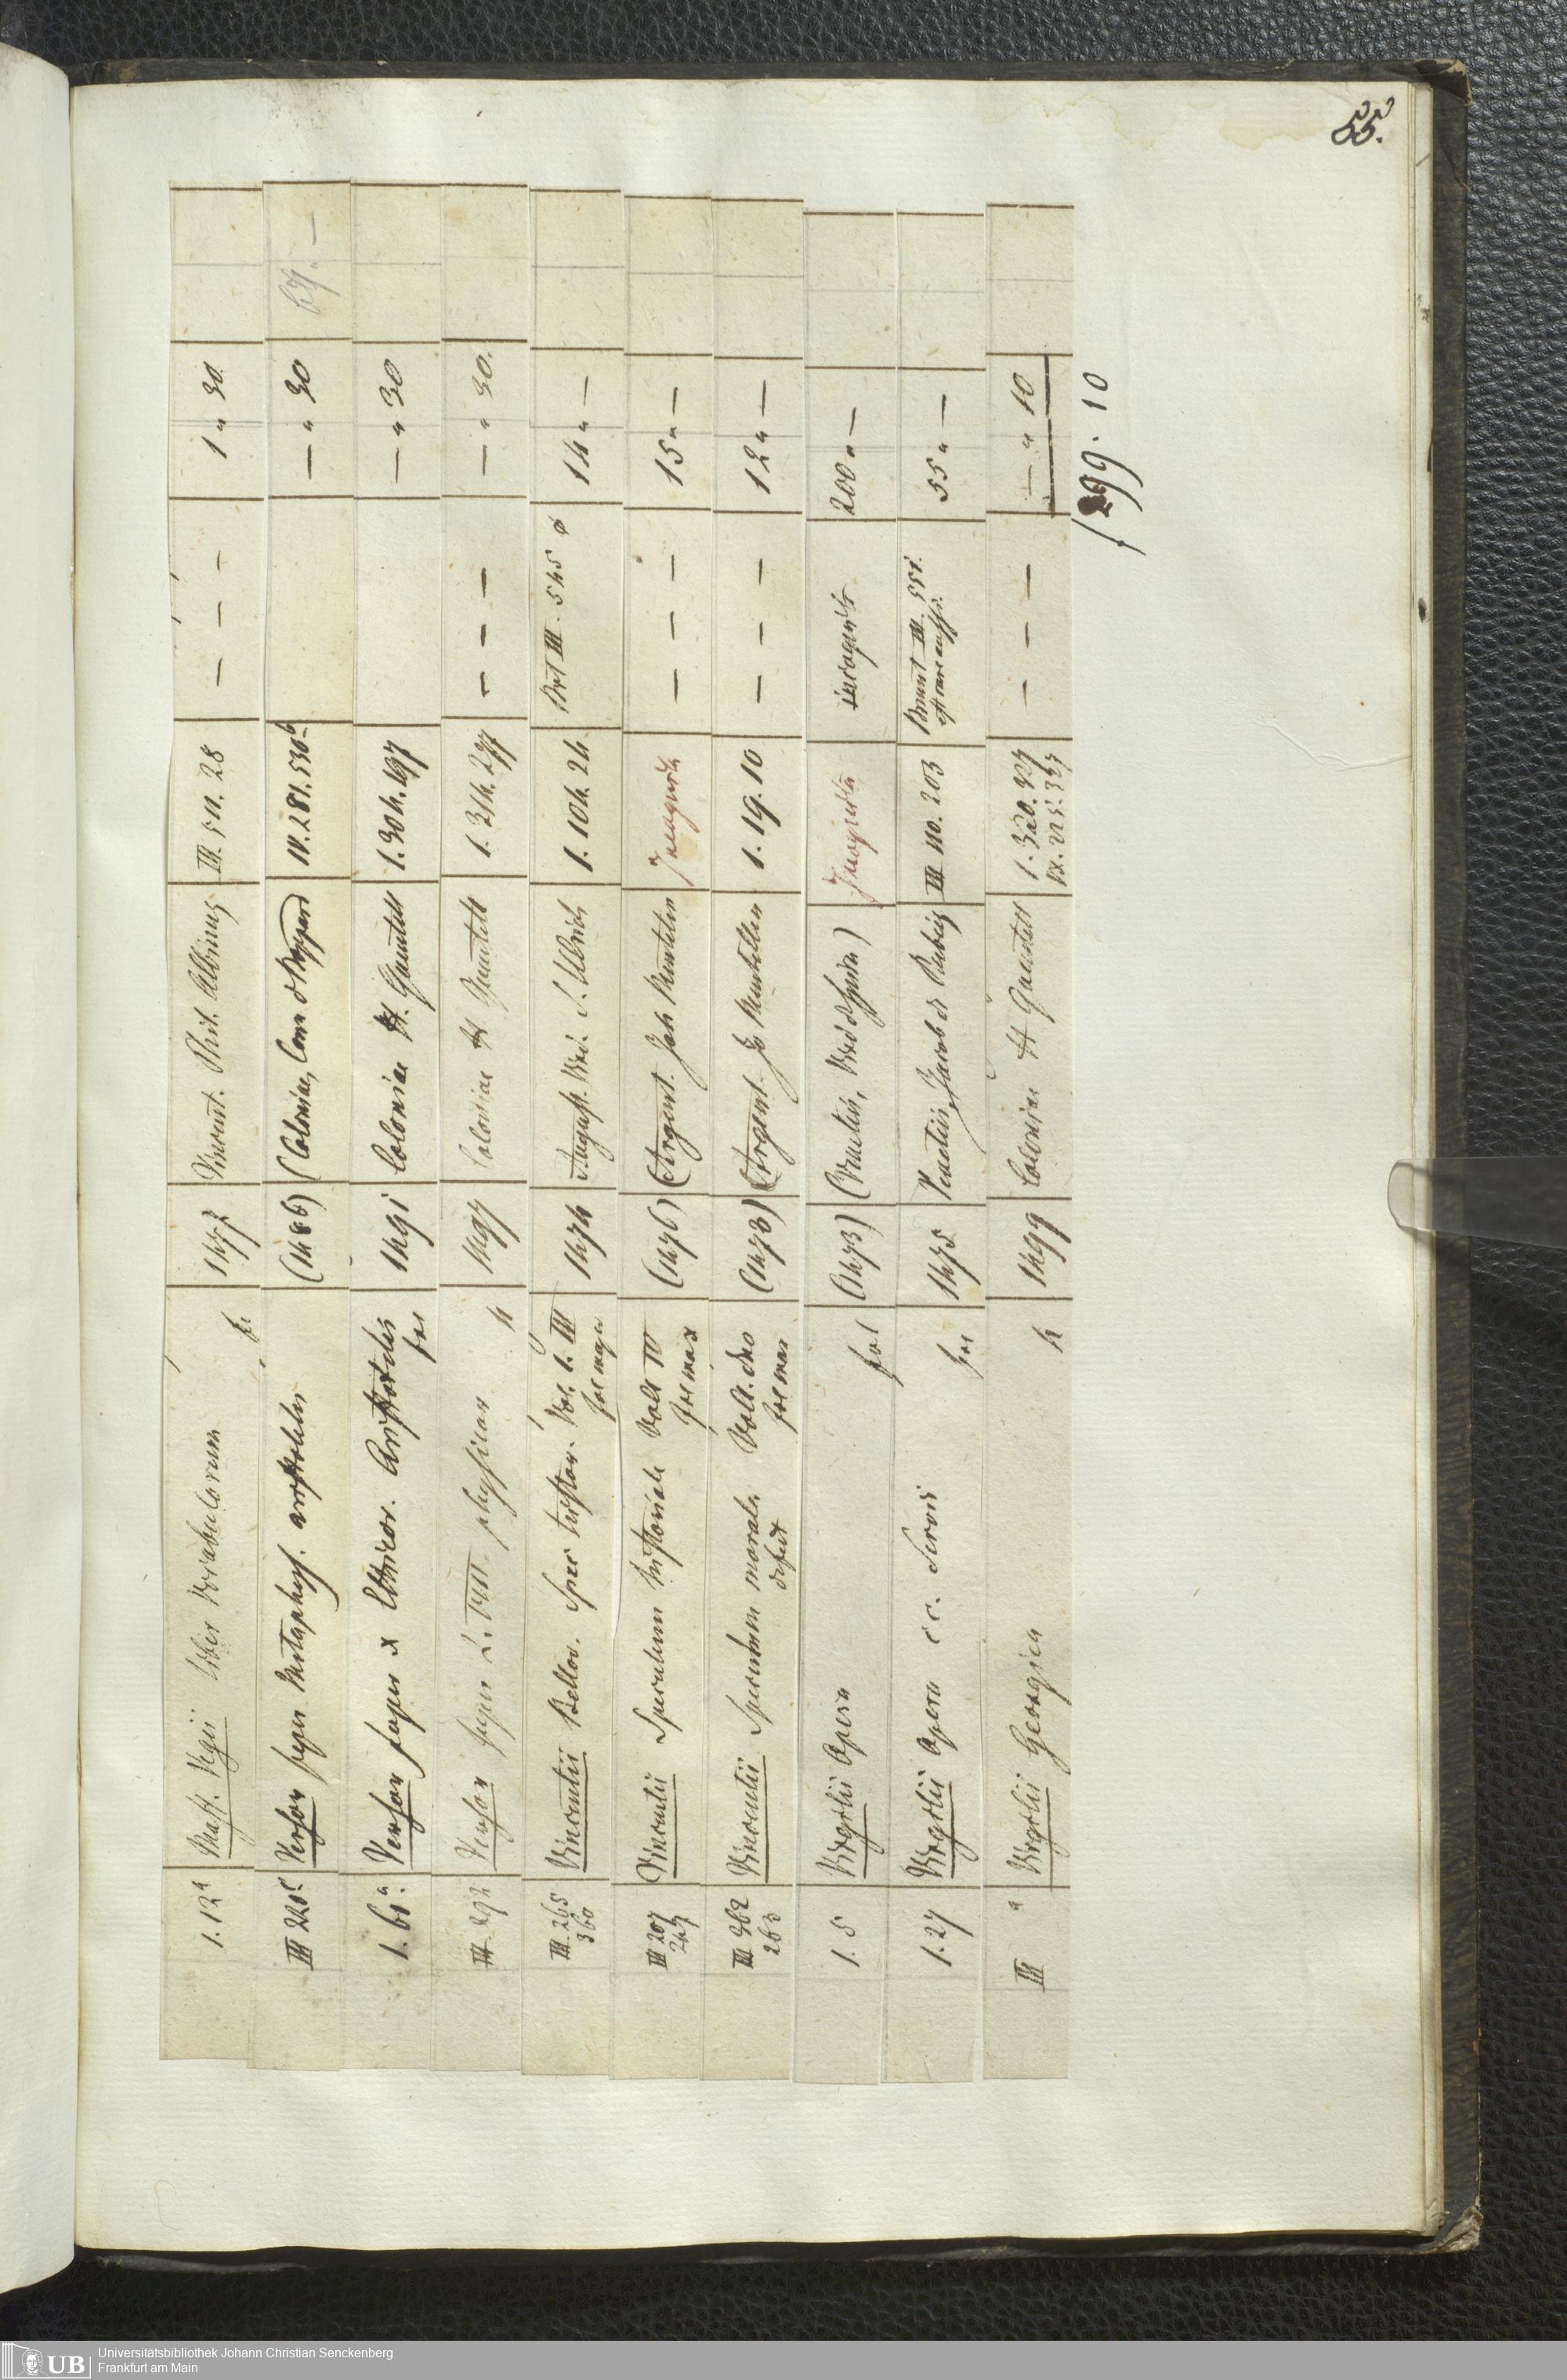 55.
1. 12a Maff. Vegii Liber Vocabulorum fol 1477 Vincent. Phil. Albinus III. 511. 28 — — — 1 " 30
III 226c Versor super Metaphys. aristotelis (1486) (Coloniae, Conr d Boppard IV. 281. 530b — " 30 67. —
1. 61a. Versor super X Ethicor. Aristotelis fol 1491 Coloniae H. Quentell 1. 304. 197 — " 30
III. 292 Versor super L. VIII. physicor 4 1497 Coloniae H Quentell 1. 314. 277 — — — — " 30.
III. 265 Vincentii Bellov. Spec histor. Vol. 1. III 1474 August. Vind. S. Ulrich 1. 104. 24 Brt III. 545 14 " —
360 fol major
III 207 Vincentii Speculum historiale Voll IV (1476) (Argent. Joh Mentelin Incognita — — — 15 " —
247 fol max
III 362 Vincentii Speculum morale Voll. duo (1473) (Argent. Jo Mentellin 1. 19. 10 — — — 12 " —
263 defect fol max
1. 5 Virgilii Opera fol (1473) (Venetiis, Vind d Spira) Incognita incognit 200 " —
1. 27 Virgilii Opera c c. Servii fol 1475 Venetiis, Jacob d Rubeis III 110. 203 Brunet III. 551. 55 " —
est rare aussi.
III " Virgilii Georgica 4 1499 Coloniae H Quentell 1. 320. 327 — — — — " 10
IX. 225. 327
f 299. 10
UB Universitätsbibliothek Johann Christian Senckenberg
Frankfurt am Main